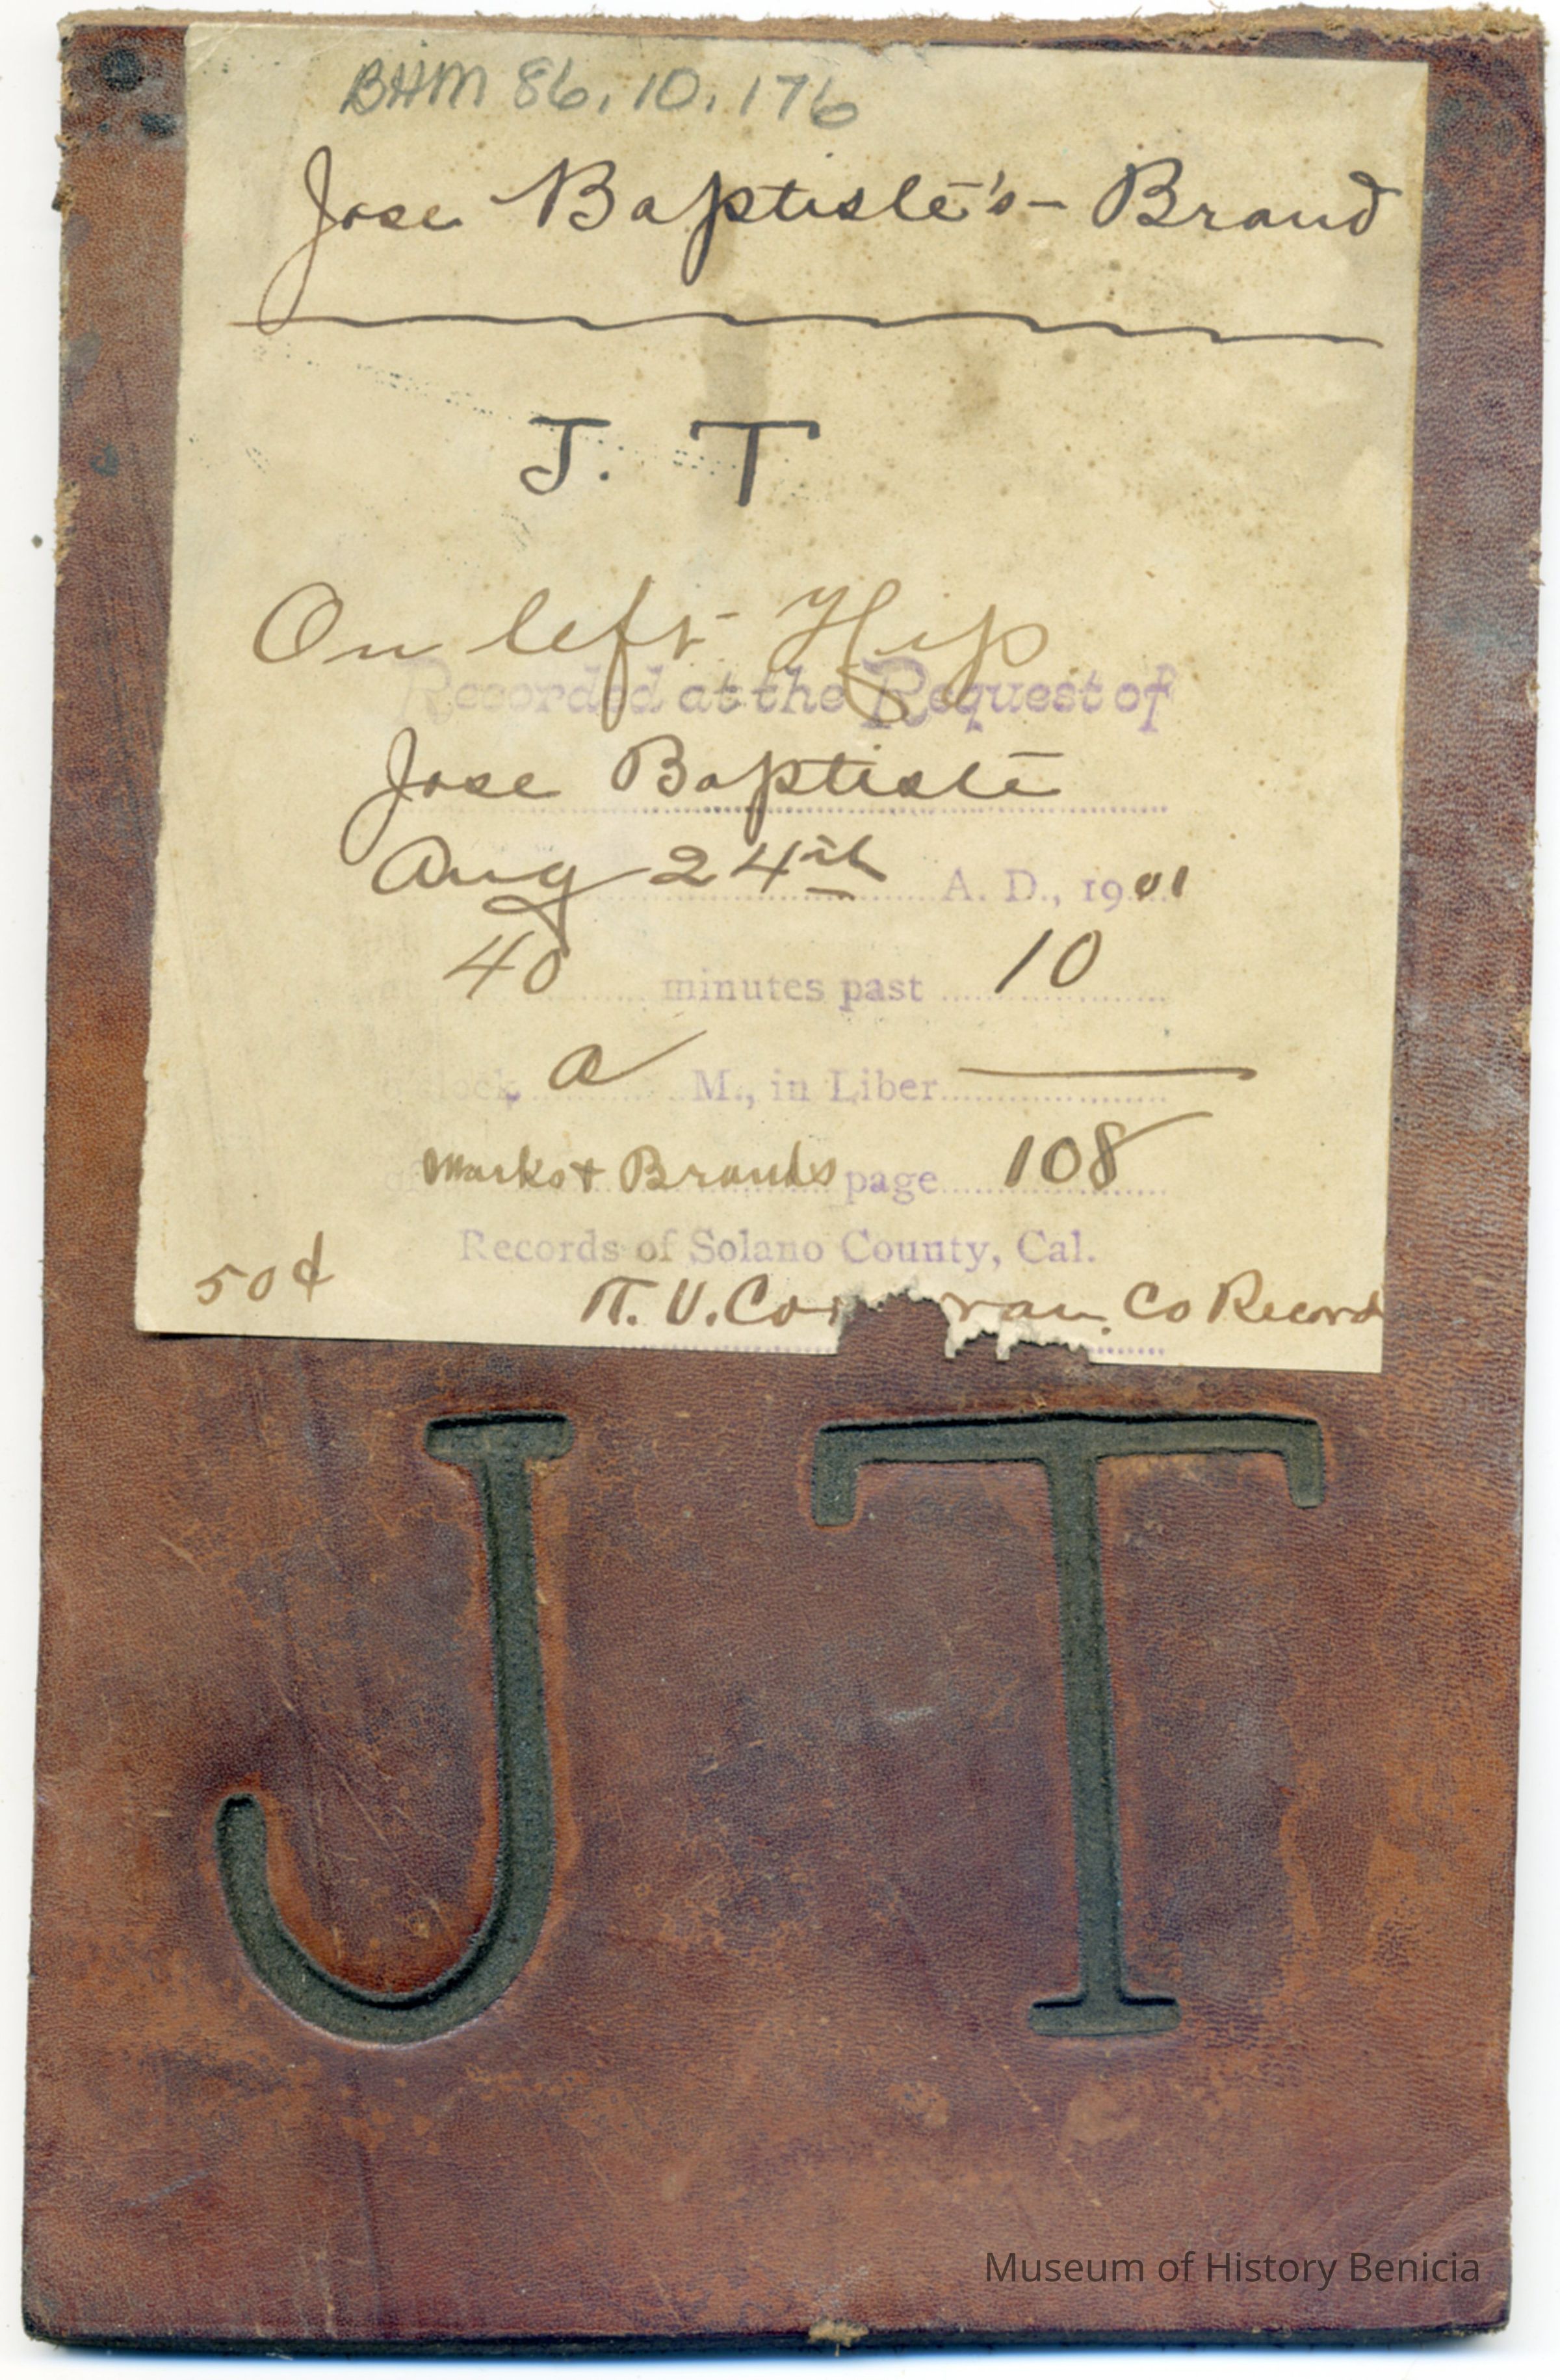 BHM 86.10.176
Jose Baptiste's - Brand
J. T
On left Hip
Recorded at the Request of
Jose Baptiste
Aug 24th A. D., 1901
at 40 minutes past 10
o'clock, a M., in Liber
of Marks & Brands page 108
Records of Solano County, Cal.
50¢ Co Record
J T
Museum of History Benicia